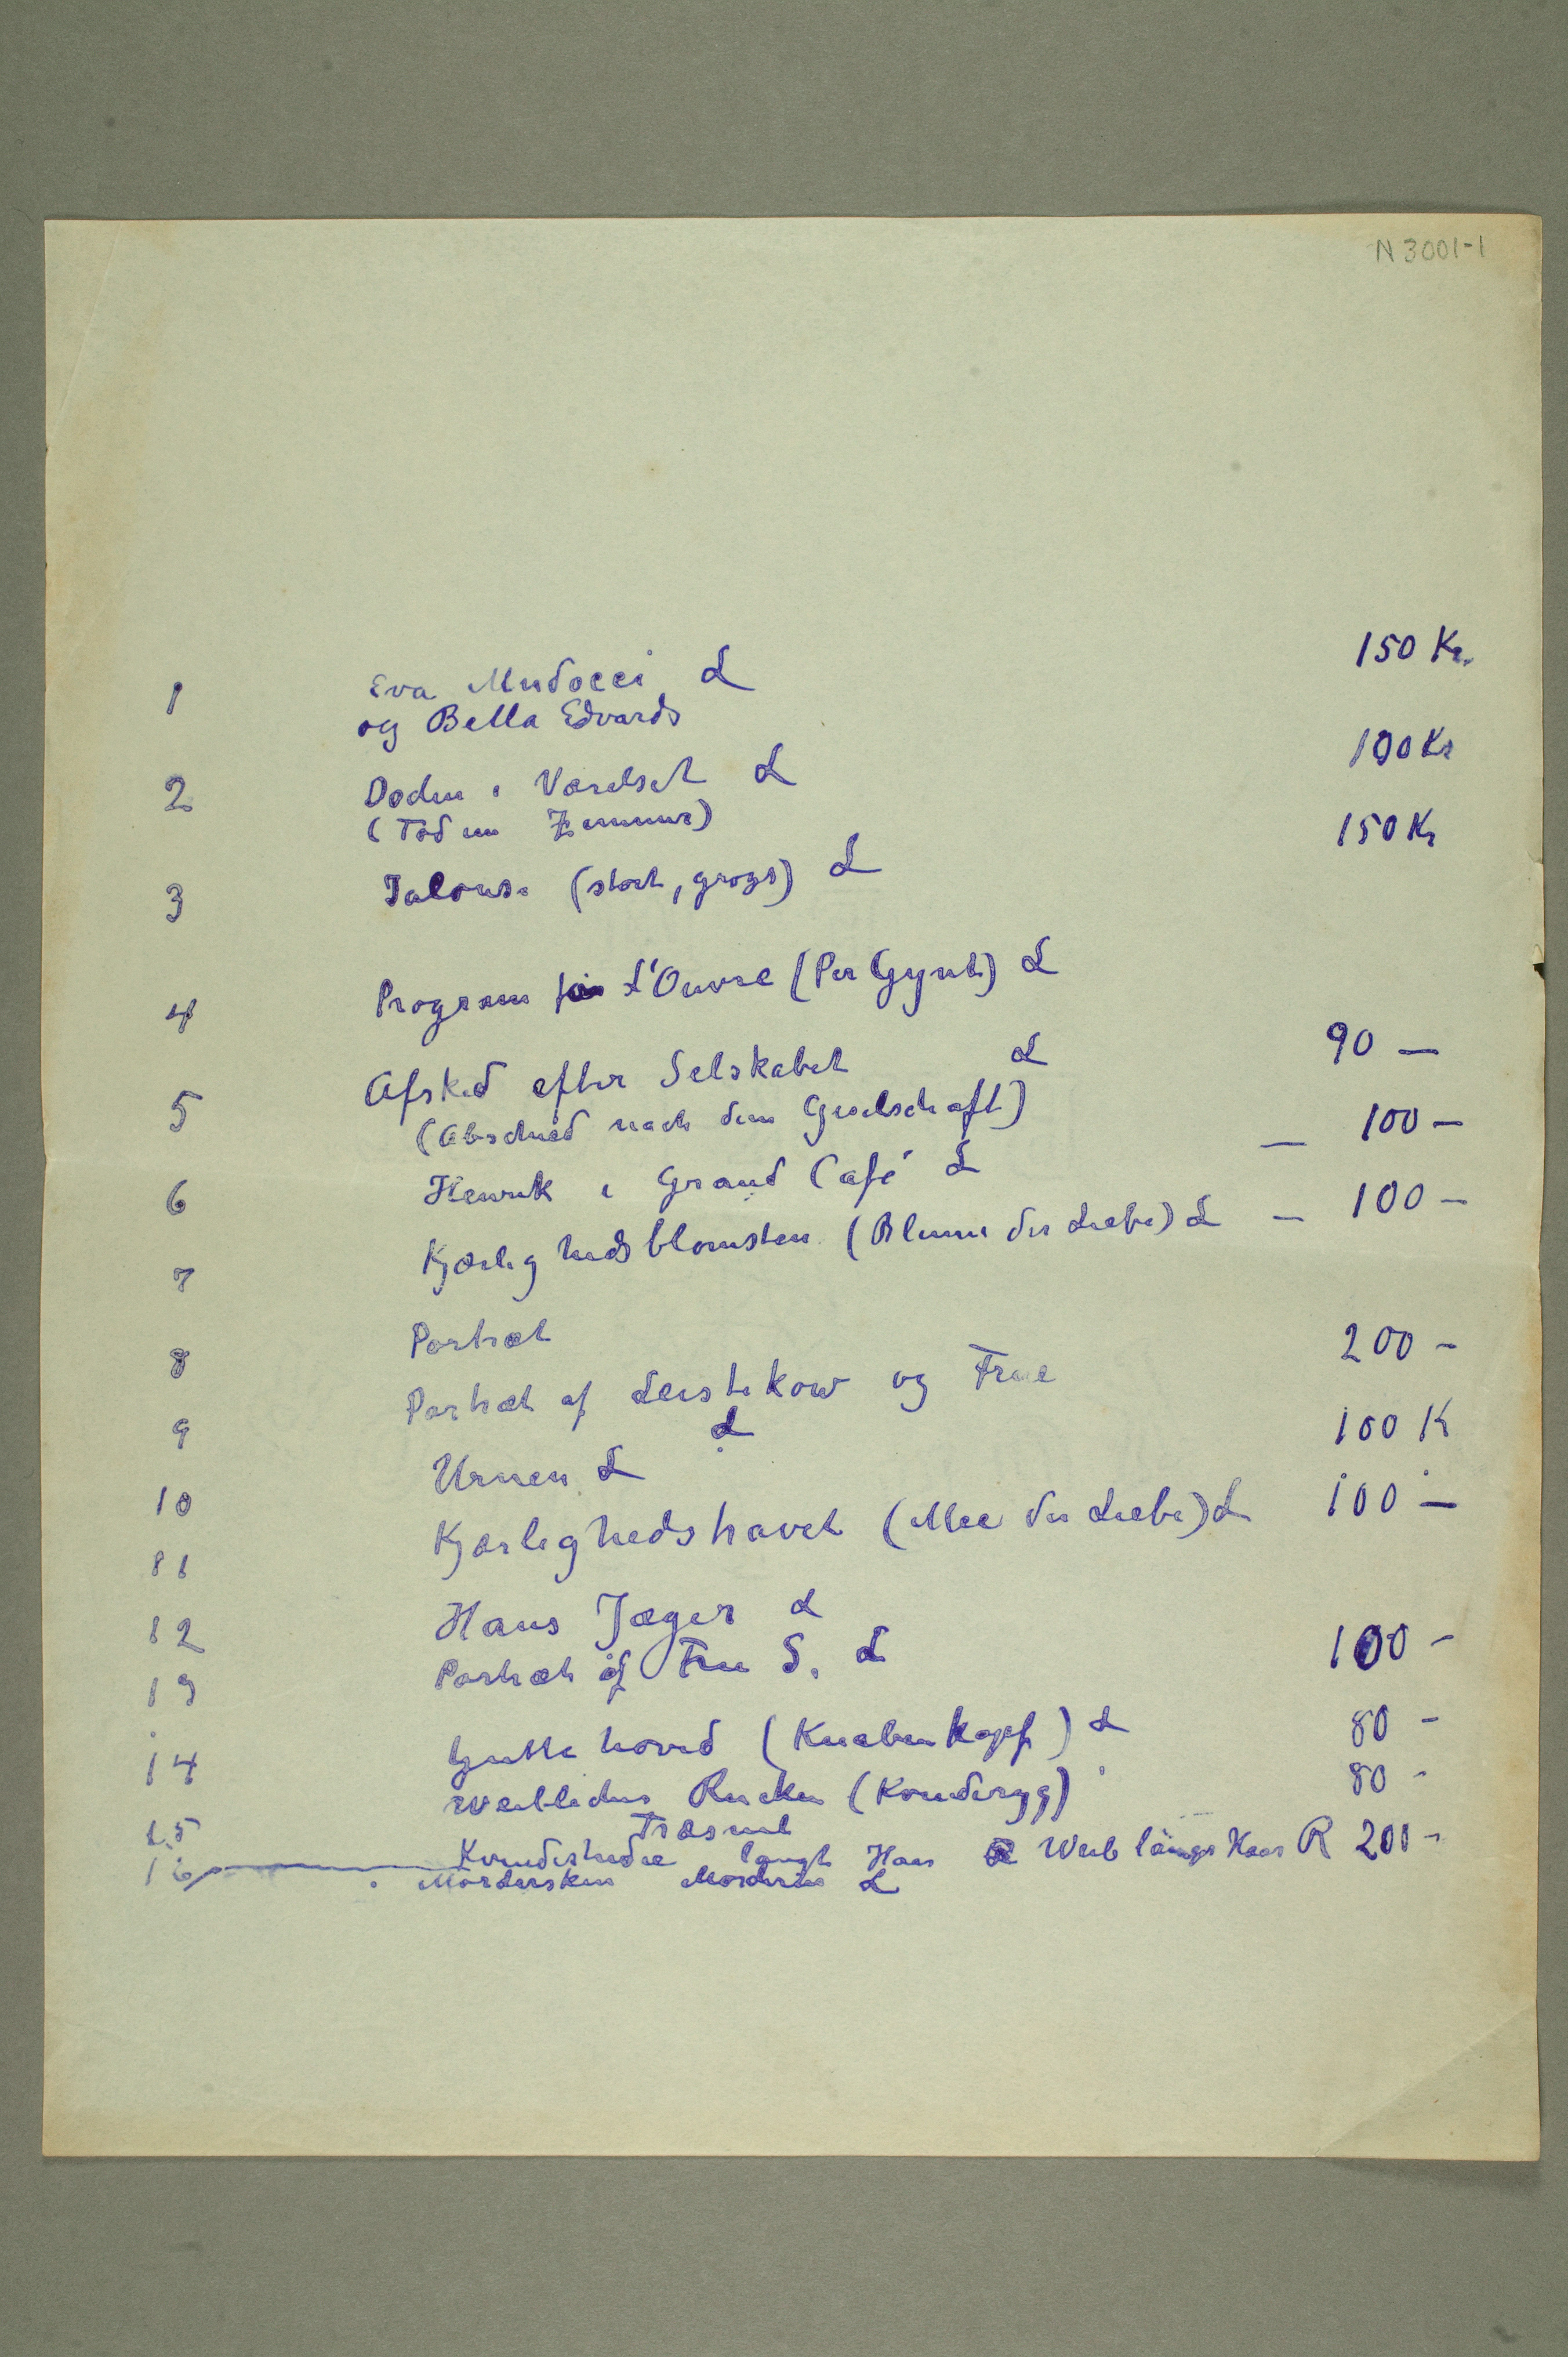 N 3001-1
1 Eva Mudocci L 150 Kr.
og Bella Edvards
2 Døden i Værelset L 100 Kr
(Tod im Zimmer)
3 Jalousi (stort, gross) L 150 Kr
4 Program for L'Ouvre (Per Gynt) L
5 Afsked efter Selskabet L 90 —
(Abschied nach dem Geselschaft)
6 Henrik i Grand Café L — 100 —
7 Kjærlighedsblomsten (Blume der Liebe) L — 100 —
8 Portræt
9 Portræt af Leistikow og Frue 200 —
L
10 Urnen L 100 K
11 Kjærlighedshavet (Mee der Liebe) L 100 —
12 Hans Jæger L
13 Portræt af Fru S. L 100 —
14 Guttehoved (Knabenkopf) L 80 —
15 Weibliches Rucken (Kvinderygg) 80 —
Træsnit
16 Kvindeshode langt Haar Weib länger Haar R 200 —
Mordersken Morderin L